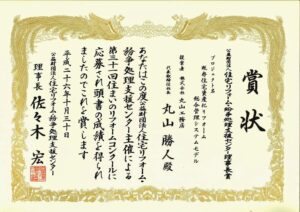 賞状
公益財団法人住宅リフォーム・紛争処理支援センター理事長賞
プロジェクト名
既存住宅資産化リフォーム
総合管理システムモデル
提案者 株式会社 丸山工務店
代表取締役社長
丸山 勝人殿
あなたはこの度公益財団法人住宅リフォーム・
紛争処理支援センター主催による
第三十一回住まいのリフォームコンクールに
応募され頭書の成績を得られ
ましたのでこれを賞します
平成二十六年十月三十日
公益財団法人住宅リフォーム・紛争処理支援センター
理事長 佐々木 宏